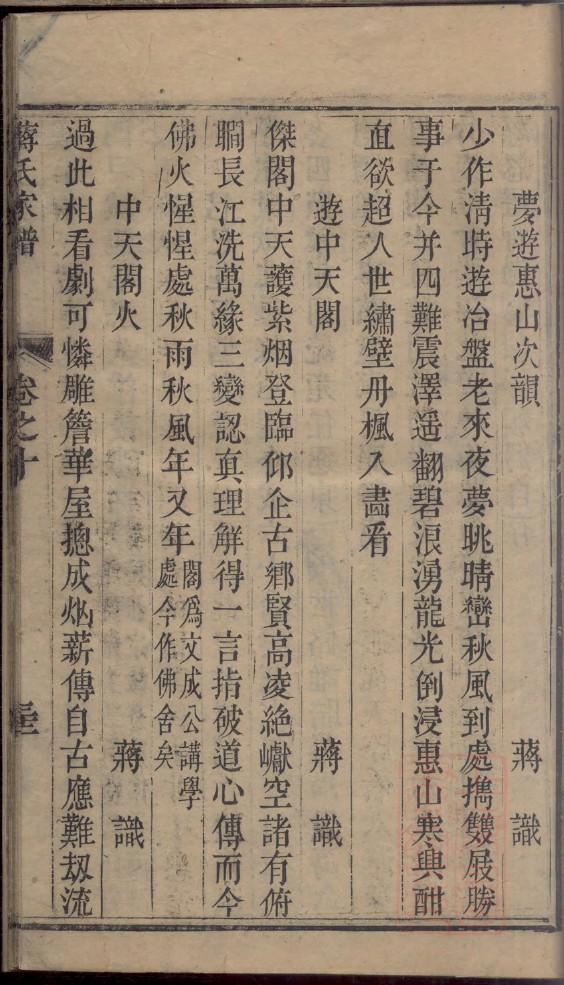 夢遊惠山次韻 蔣識
少作清時遊冶盤老來夜夢眺晴巒秋風到處擕雙屐勝
事于今并四難震澤遥翻碧浪湧龍光倒浸惠山寒與酣
直欲超人世繡壁丹楓入畵看
遊中天閣 蔣識
傑閣中天護紫烟登臨仰企古鄉賢高凌絶巘空諸有俯
瞯長江洗萬緣三變認真理解得一言指破道心傳而今
佛火惺惺處秋雨秋風年又年閣爲文成公講學處今作佛舍矣
中天閣火 蔣識
過此相看劇可憐雕簷華屋摠成烟薪傳自古應難刼流
蔣氏家譜 卷之十